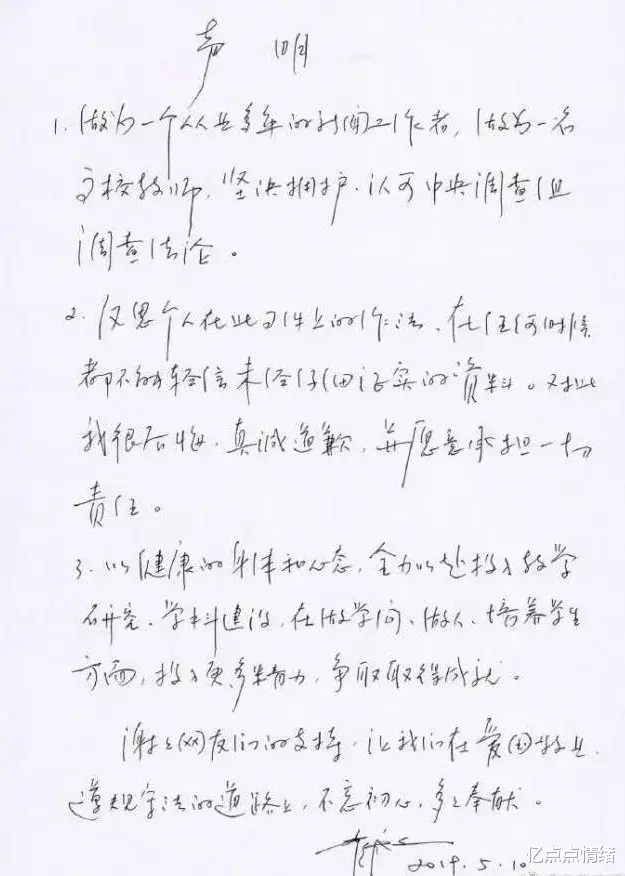 声 明
1. 做为一个从业多年的新闻工作者，做为一名
高校教师，坚决拥护、认可中央调查组
调查结论。
2. 反思个人在此事件上的作法，在任何时候
都不能轻信未经仔细证实的资料。对此
我很后悔，真诚道歉，并愿意承担一切
责任。
3. 以健康的身体和心态，全力以赴投入教学
研究、学科建设，在做学问、做人、培养学生
方面，投入更多精力，争取取得成就。
谢谢网友们的支持，让我们在爱国敬业、
遵规守法的道路上，不忘初心，多多奉献。
2019.5.10
亿点点情绪